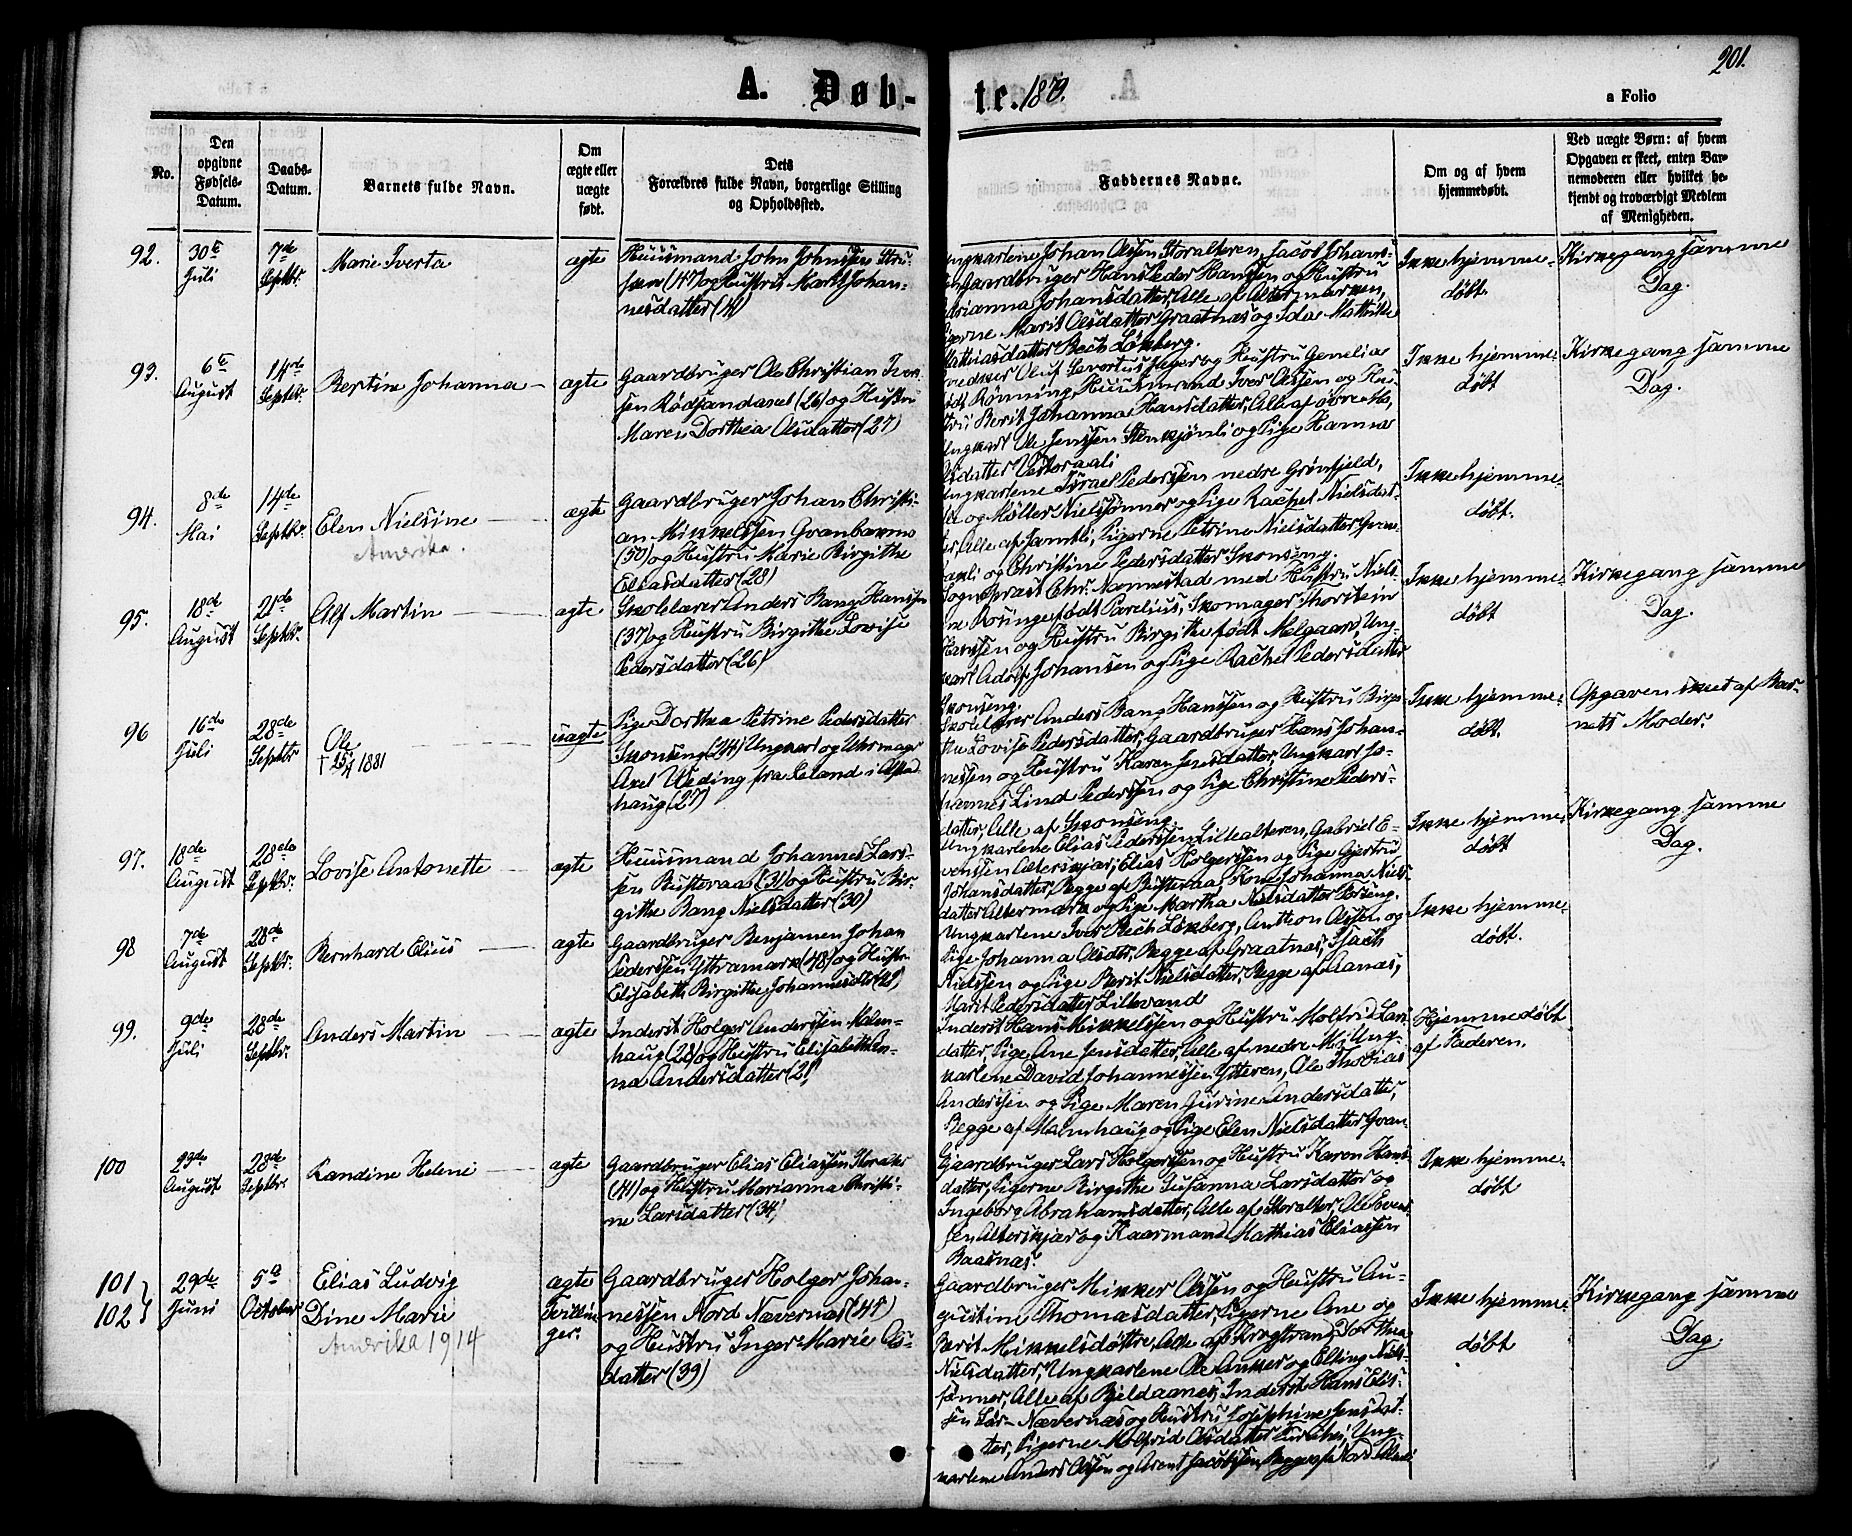 201.
A. Døb-
te. 1879.
a Folio
No.
Den
opgivne
Fødsels-
Datum.
Daabs-
Datum.
Barnets fulde Navn.
Om
ægte eller
uægte
født.
Dets
Forældres fulde Navn, borgerlige Stilling
og Opholdssted.
Faddernes Navne.
Om og af hvem
hjemmedøbt.
Ved uægte Børn: af hvem
Opgaven er skeet, enten Bar-
nemoderen eller hvilket be-
kjendt og troværdigt Medlem
af Menigheden.
92.
30te
Juli
7de
Septbr.
Marie Iverta
ægte
Huusmand John Johnsen
(47) og Hustru Johan-
nesdatter
Johan Olsen Storalteren, Jacob Johans-
Gaardbruger Hans Peder Hansen og Hustru
Johansdatter, Alle af Altermarken,
Marit Olsdatter Graatnæs og Ida
Mathiasdatter Bech Løkberg.
Ikke hjemme-
døbt.
Kirkegang samme
Dag.
93.
6te
August
14de
Septbr.
Bertine Johanna
ægte
Gaardbruger Ole Christian Iver-
sen Rødsandaxel (26) og Hustru
Maren Dorthea Olsdatter (27)
Oluf Severtus Jager og Hustru
født Rønning, Huusmand Iver Olsen og Hus-
tru Berit Johanna Hansdatter, Alle af øvre Mo,
Ungkarl Ole Jenssen og Pige Hanna
Ikke hjemme-
døbt
Kirkegang samme
Dag.
94.
8de
Mai
14de
Septbr.
Elen Nielsine
Amerika.
ægte
Gaardbruger Johan Christi-
an Mikkelsen
(30) og Hustru Marie Birgithe
Eliasdatter (28)
Ungkarlene Israel Pedersen nedre Grønfjeld,
og Møller Nielsønner og Pige Rachel Nielsdat-
ter, Alle af Jamtli, Pigerne Petrine Nielsdatter
og Christine Pedersdatter Skonseng.
Ikke hjemme-
døbt.
95.
18de
August
21de
Septbr.
Alf Martin
ægte
Skolelærer Anders Bang Hanssen
(37) og Hustru Birgithe Lovise
Pedersdatter (26)
Sognepræst Chr. Nannestad med Hustru
født Parelius, Skomager Thorstein
Hanssen og Hustru Birgithe født Melgaard, Ung-
karl Adolf Johansen og Pige Rachel Pedersdatter
Skonseng.
Ikke hjemme-
døbt
Kirkegang samme
Dag.
96
16de
Juli
28de
Septbr
Ole
† 25/4 1881
uægte
Pige Dorthea Petrine Pedersdatter
Skonseng (24) Ungkarl og Uhrmager
Axel Weding fra Leland i Alstad
haug (27)
Skolelærer Anders Bang Hanssen og Hustru Birgi-
the Lovise Pedersdatter, Gaardbruger Hans Johan-
nessen og Hustru Karen Jensdatter, Ungkarl Jo-
hannes Lind Pedersen og Pige Christine Peders-
datter, Alle af Skonseng.
Ikke hjemme-
døbt.
Opgaven skeet af Bar-
nets Moder.
97.
18de
August
28de
Septbr.
Lovise Antonette
ægte
Huusmand Johannes Lars-
sen Busteraa (31) og Hustru Bir-
githe Bang Nielsdatter (30)
Ungkarlene Elias Pedersen Lillealteren, Gabriel E-
vensen Alterskjær, Elias Holgersen og Pige Gjertru
Johansdatter, Begge af Busteraa, Kone Johanna Niels-
datter Altermark og Pige Martha Nielsdatter
Ikke hjemme-
døbt
Kirkegang samme
Dag.
98
7de
August
28de
Septbr.
Bernhard Elius
ægte
Gaardbruger Benjamen Johan
Pedersen Yttramark (48) og Hustru
Elisabeth Birgithe Johannesdtr
Ungkarlene Iver Bech Løkberg, Anthon Olsen og
Pige Johanna Olsdtr, Begge af Graatnæs, Isach
Nielsen og Pige Berit Nielsdatter, Begge af Aanæs,
Marit Pedersdatter Lillevand
Ikke hjemme-
døbt.
99.
9de
Juli
28de
Septbr.
Anders Martin
ægte
Inderst Holger Andersen Malm-
haug (28) og Hustru Elisabeth An-
na Andersdatter
Inderst Hans Mikkelsen og Hustru Molfrid Lars-
datter, Pige Ane Jensdatter, Alle af nedre Mo, Ung-
karlene David Johannessen Ytteren, Ole Thobias
Andersen og Pige Maren Gurine Andersdatter,
Begge af Malmhaug og Pige Elen Nielsdatter
Hjemmedøbt
af Faderen.
100
29de
August
28de
Septbr.
Randine Helene
ægte
Gaardbruger Elias Eliassen Storalter
(41) og Hustru Marianna Christi-
ne Larsdatter (34)
Gaardbruger Lars Holgersen og Hustru Karen Hans-
datter, Pigerne Birgithe Susanna Larsdatter og
Ingeborg Abrahamsdatter, Alle af Storalter, Ole Even-
sen Alterskjær og Kaarmand Mathias Eliassen
Baasnæs.
Ikke hjemme-
døbt
101
102
29de
Juni
5te
October
Elias Ludvig
Dine Marie
Amerika 1914
ægte
Tvillin-
ger.
Gaardbruger Holger Johan-
nessen Nord Nævernæs (45)
og Hustru Inger Marie Ols-
datter (39)
Gaardbruger Mikkel Olsen og Hustru Au-
gustine Thomasdatter, Pigerne Ane og
Berit Mikkelsdøttre, Alle af Dorthea
Nielsdatter, Ungkarlene Ole Anker og Elling Niels-
sønner, Alle af Bjeldaanes, Inderst Hans Elis-
sen Nævernæs og Hustru Josephine Jensdat-
ter, Pigerne Molfrid Olsdatter Ung-
karlene Anders Olsen og Arent Jacobsen, Begge af Nord
Ikke hjemme-
døbt
Kirkegang samme
Dag.